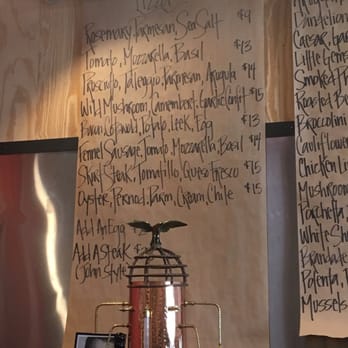 Pizza
Rosemary, Parmesan, Sea Salt $9
Tomato, Mozzarella, Basil $13
Prosciutto, Taleggio, Parmesan, Arugula $14
Wild Mushroom, Camembert, Garlic Confit $15
Bacon, Cotswold, Potato, Leek, Egg $13
Fennel Sausage, Tomato, Mozzarella, Basil $14
Skirt Steak, Tomatillo, Queso Fresco $15
Oyster, Pernod, Parm, Cream, Chile $15
Add An Egg
Add A Steak $
(John Style)
Dandelion
Caesar, Gar
Little Gems
Smoked Tr
Roasted Be
Broccolini
Cauliflower
Chicken Li
Mushroom
Porchetta
White Sh
Brandade
Polenta,
Mussels